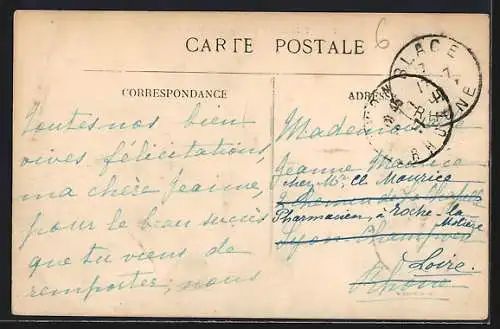 CARTE POSTALE
6
CORRESPONDANCE
ADRES
BLACÉ
RHONE
Toutes nos bien
vives félicitations,
ma chère Jeanne,
pour le beau succès
que tu viens de
remporter, nous
Mademoiselle
Jeanne Maurice
chez Mr. Cl Maurice
2 Chemin de la
Pharmacien, à Roche-la
Molière
Lyon
Loire.
Rhône